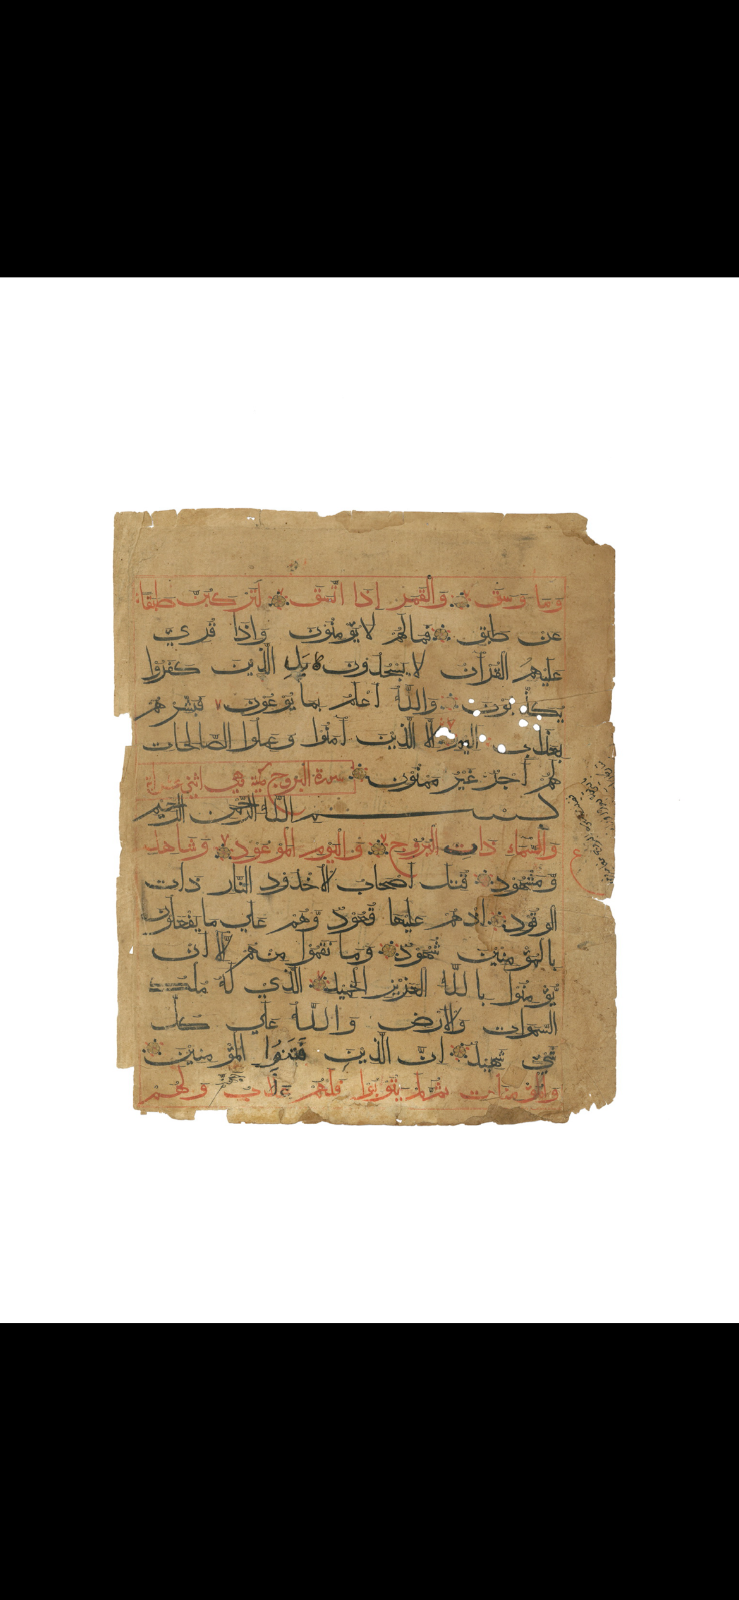 وَمَا وَسَقَ وَالقَمَرِ إِذَا اتَّسَقَ لَتَرْكَبُنَّ طَبَقًا
عن طبق فما لهم لا يؤمنون واذا قرئ
عليهم القرآن لا يسجدون بل الذين كفروا
يكذبون والله اعلم بما يوعون فبشرهم
بعذاب اليم الا الذين آمنوا وعملوا الصالحات
لهم أجر غير ممنون سورة البروج مكية وهي
بسم الله الرحمن الرحيم
والسماء ذات البروج واليوم الموعود وشاهد
ومشهود قتل أصحاب الاخدود النار ذات
الوقود اذ هم عليها قعود وهم على ما يفعلون
بالمؤمنين شهود وما نقموا منهم الا ان
يؤمنوا بالله العزيز الحميد الذي له ملك
السموات والارض والله على كل
شيء شهيد ان الذين فتنوا المؤمنين
والمؤمنات ثم لم يتوبوا فلهم عذاب ولهم
ع